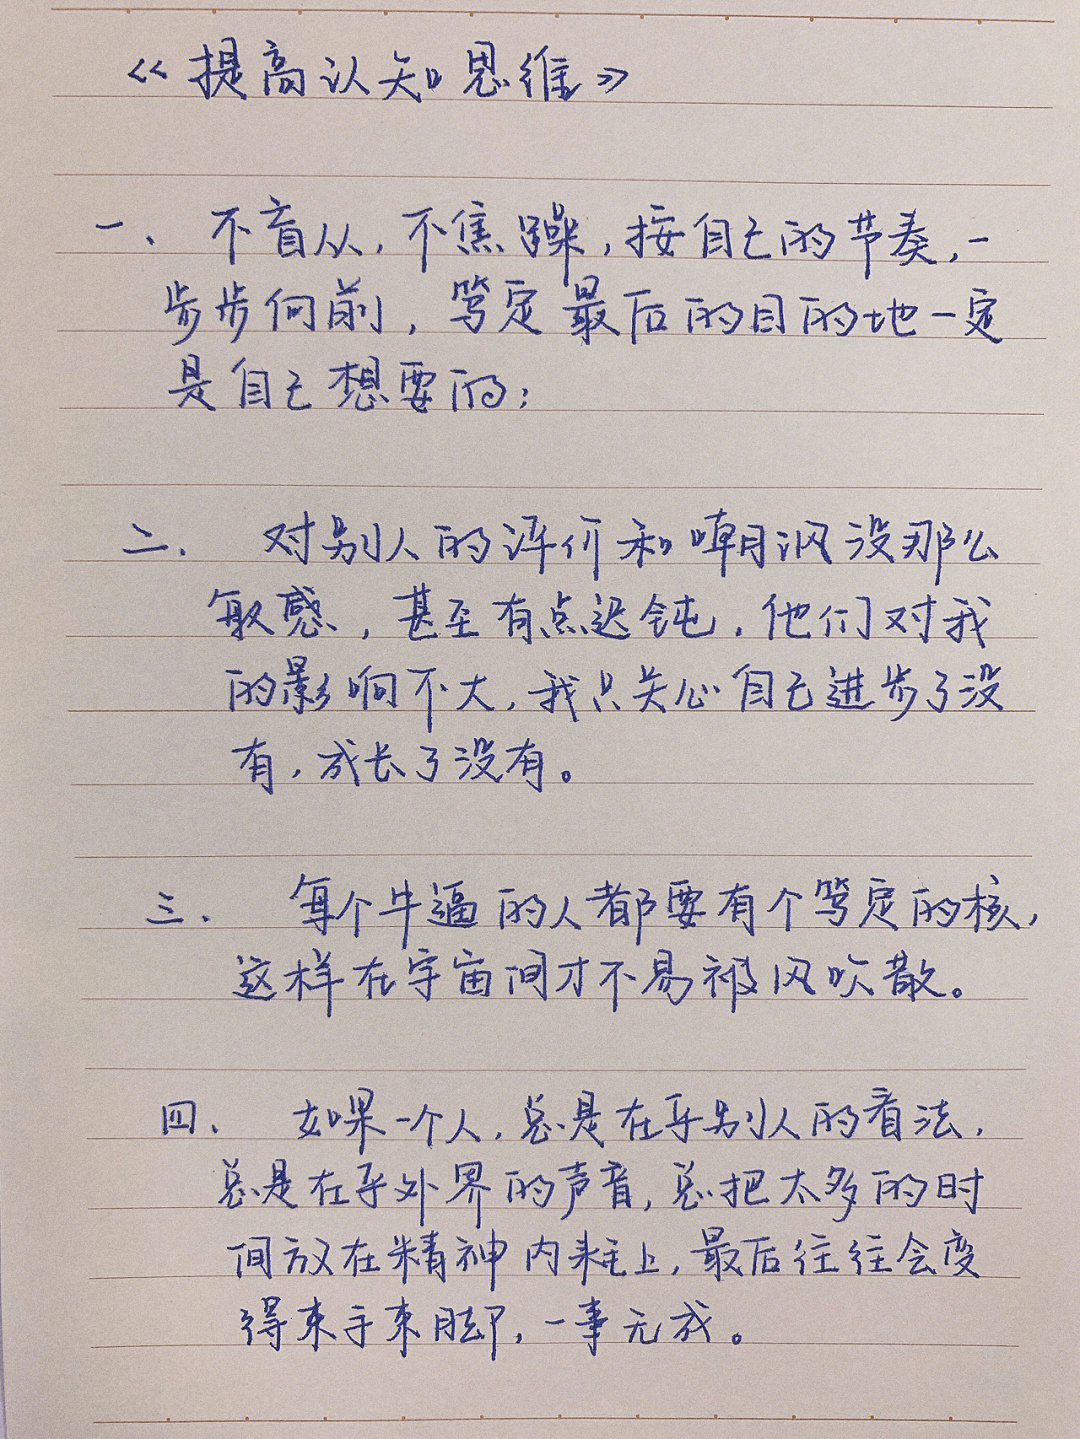 《提高认知思维》
一、不盲从,不焦躁,按自己的节奏,一
步步向前,笃定最后的目的地一定
是自己想要的;
二、对别人的评价和嘲讽没那么
敏感,甚至有点迟钝,他们对我
的影响不大,我只关心自己进步了没
有,成长了没有。
三、每个牛逼的人都要有个笃定的核,
这样在宇宙间才不易被风吹散。
四、如果一个人,总是在乎别人的看法,
总是在乎外界的声音,总把太多的时
间放在精神内耗上,最后往往会变
得束手束脚,一事无成。